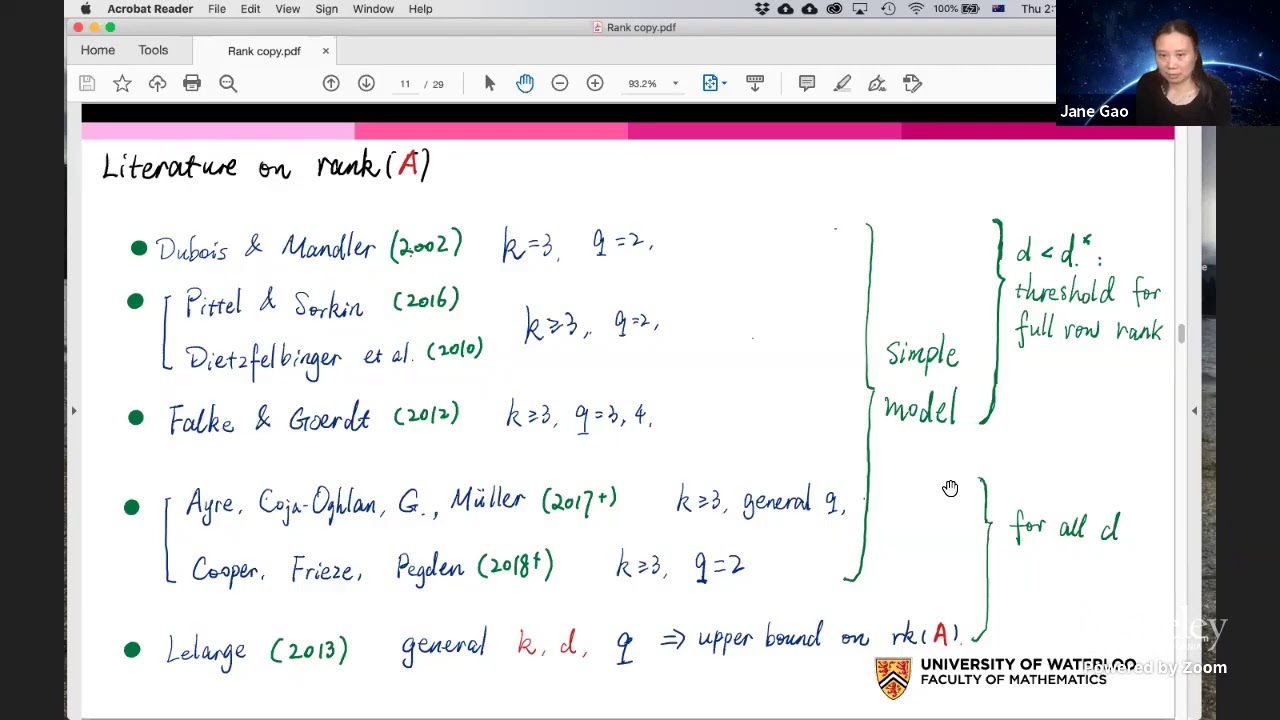 Acrobat Reader File Edit View Sign Window Help 100% Thu 2:
Rank copy.pdf
Home Tools Rank copy.pdf ×
11 / 29 93.2%
Jane Gao
Literature on rank(A)
Dubois & Mandler (2002) k=3, q=2,
Pittel & Sorkin (2016)
Dietzfelbinger et al. (2010)
k≥3, q=2,
Falke & Goerdt (2012) k≥3, q=3, 4,
Ayre, Coja-Oghlan, G., Müller (2017+) k≥3, general q,
Cooper, Frieze, Pegden (2018+) k≥3, q=2
Lelarge (2013) general k, d, q ⇒ upper bound on rk(A).
simple
model
d < d*:
threshold for
full row rank
for all d
UNIVERSITY OF WATERLOO
FACULTY OF MATHEMATICS
Powered by Zoom